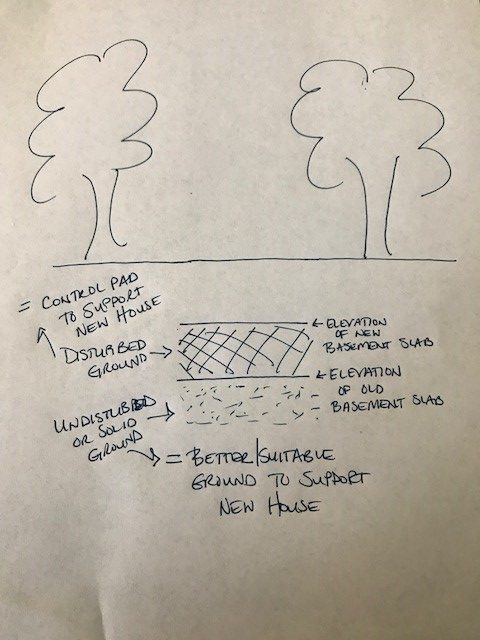 = CONTROL PAD
TO SUPPORT
NEW HOUSE
DISTURBED
GROUND →
← ELEVATION
OF NEW
BASEMENT SLAB
← ELEVATION
OF OLD
BASEMENT SLAB
UNDISTURBED
OR SOLID
GROUND
= BETTER/SUITABLE
GROUND TO SUPPORT
NEW HOUSE